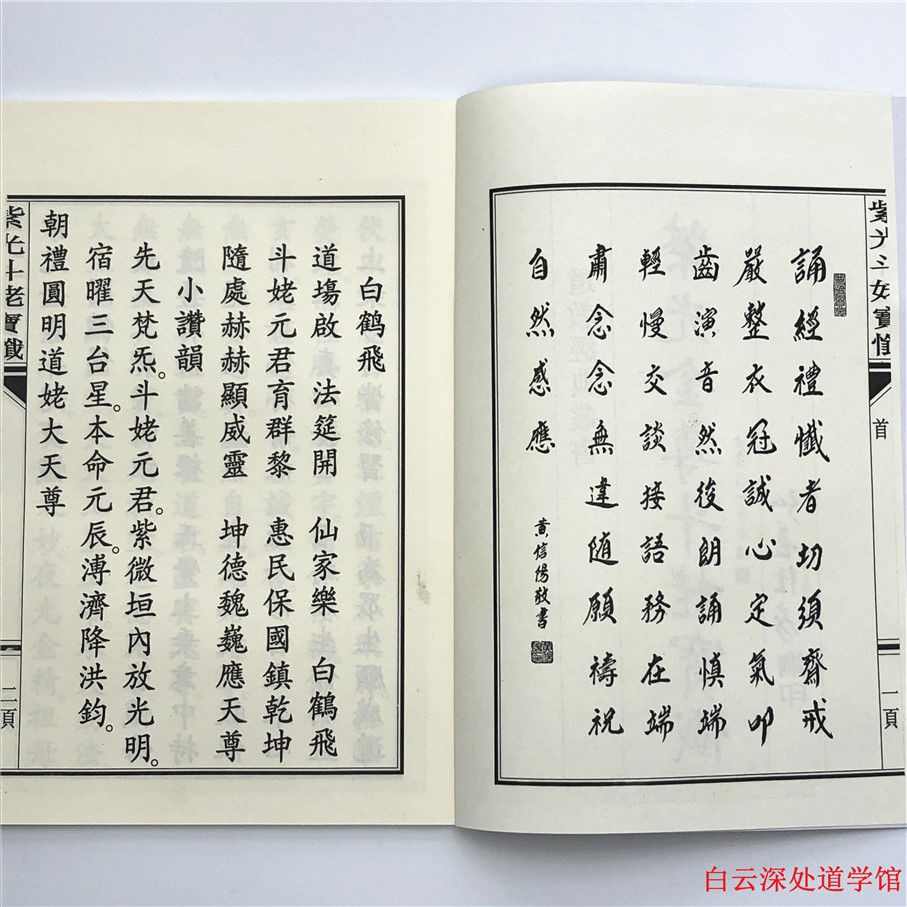 紫光斗姥寶懺
首
一頁
誦經禮懺者切須齋戒
嚴整衣冠誠心定氣叩
齒演音然後朗誦慎
輕慢交談接語務在端
肅念念無違随願禱祝
自然感應
黄信陽敬書
白鶴飛
道場啟 法筵開 仙家樂 白鶴飛
斗姥元君育群黎 惠民保國鎮乾坤
隨處赫赫顯威靈 坤德魏巍應天尊
小讚韻
先天梵炁。斗姥元君。紫微垣內放光明。
宿曜三台星。本命元辰。溥濟降洪鈞。
朝禮圓明道姥大天尊
紫光斗姥寶懺
二頁
白云深处道学馆